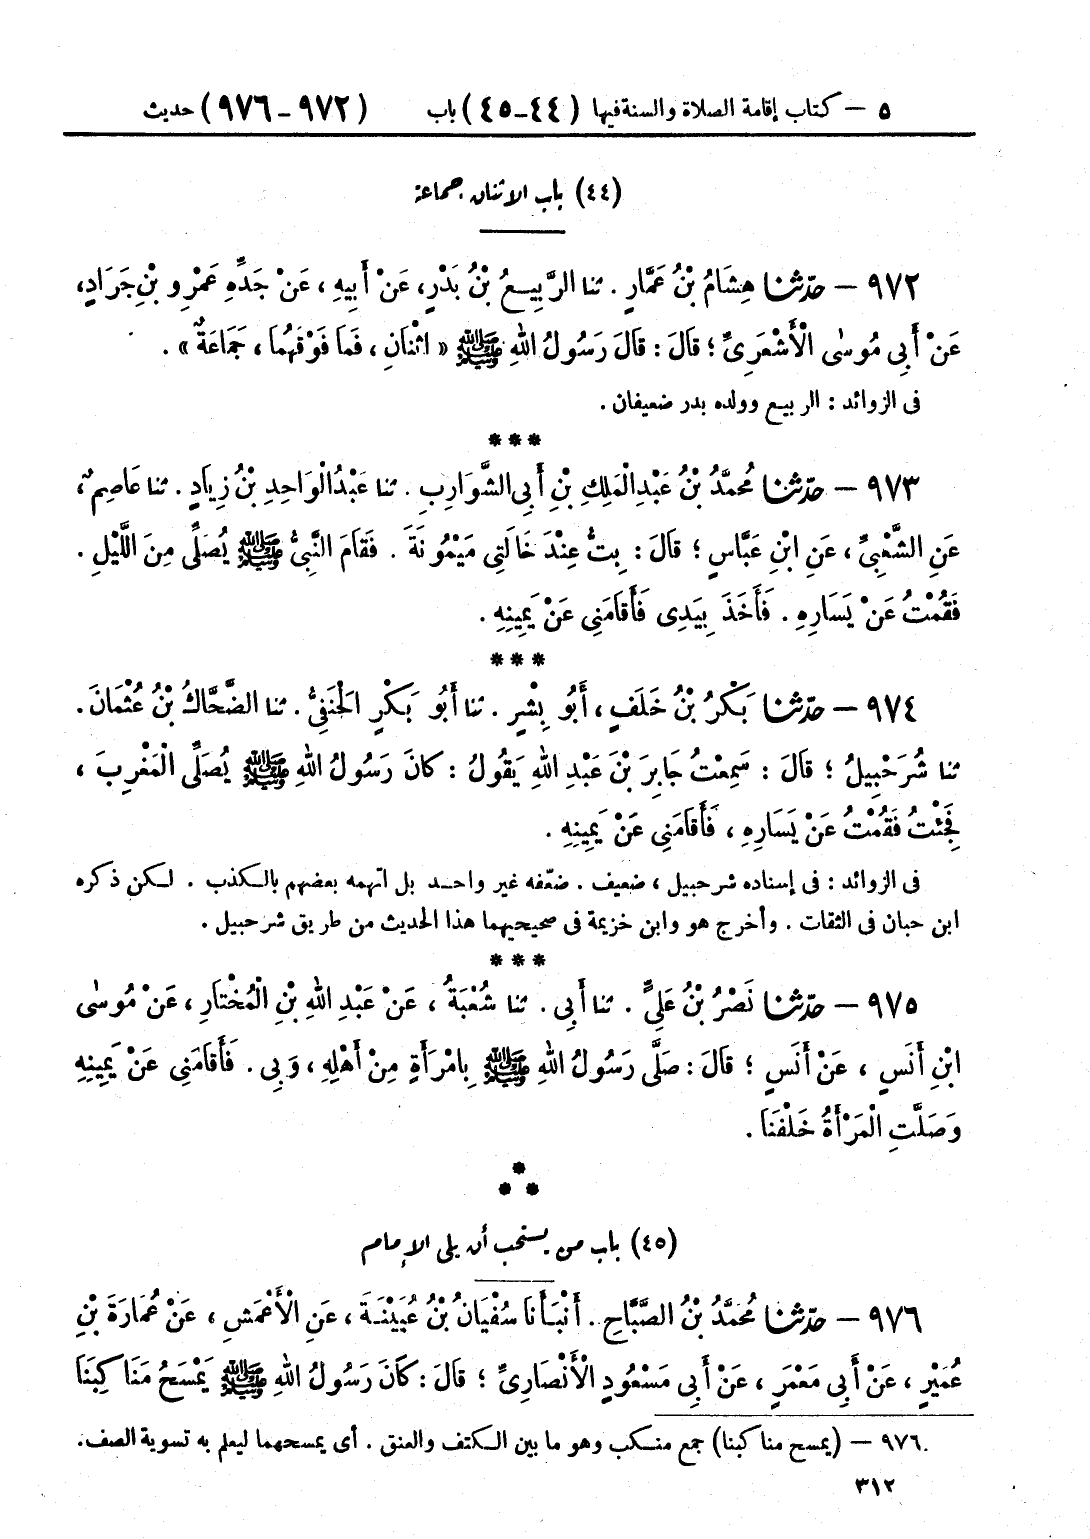 ٥ – كتاب إقامة الصلاة والسنة فيها (٤٤-٤٥) باب (٩٧٢-٩٧٦) حديث
(٤٤) باب الاثنان جماعة
٩٧٢ – حدّثنا هِشَامُ بْنُ عَمَّارٍ . ثنا الرَّبِيعُ بْنُ بَدْرٍ، عَنْ أَبِيهِ ، عَنْ جَدِّهِ عَمْرِو بْنِ جَرَادٍ،
عَنْ أَبِي مُوسٰى الْأَشْعَرِىِّ ؛ قَالَ : قَالَ رَسُولُ اللهِ ﷺ « اثْنَانِ ، فَمَا فَوْقَهُمَا ، جَمَاعَةٌ » .
فى الزوائد : الربيع وولده بدر ضعيفان .
***
٩٧٣ – حدّثنا مُحَمَّدُ بْنُ عَبْدِ الْمَلِكِ بْنِ أَبِي الشَّوَارِبِ . ثنا عَبْدُ الْوَاحِدِ بْنُ زِيَادٍ . ثنا عَاصِمٌ ،
عَنِ الشَّعْبِىِّ ، عَنِ ابْنِ عَبَّاسٍ ؛ قَالَ : بِتُّ عِنْدَ خَالَتِى مَيْمُونَةَ . فَقَامَ النَّبِىُّ ﷺ يُصَلِّى مِنَ اللَّيْلِ .
فَقُمْتُ عَنْ يَسَارِهِ . فَأَخَذَ بِيَدِى فَأَقَامَنِى عَنْ يَمِينِهِ .
***
٩٧٤ – حدّثنا بَكْرُ بْنُ خَلَفٍ ، أَبُو بِشْرٍ . ثنا أَبُو بَكْرٍ الْحَنَفِىُّ . ثنا الضَّحَّاكُ بْنُ عُثْمَانَ .
ثنا شُرَحْبِيلُ ؛ قَالَ : سَمِعْتُ جَابِرَ بْنَ عَبْدِ اللهِ يَقُولُ : كَانَ رَسُولُ اللهِ ﷺ يُصَلِّى الْمَغْرِبَ ،
فَجِئْتُ فَقُمْتُ عَنْ يَسَارِهِ ، فَأَقَامَنِى عَنْ يَمِينِهِ .
فى الزوائد : فى إسناده شرحبيل ، ضعيف . ضعّفه غير واحد بل اتهمه بعضهم بالكذب . لكن ذكره
ابن حبان فى الثقات . وأخرج هو وابن خزيمة فى صحيحيهما هذا الحديث من طريق شرحبيل .
***
٩٧٥ – حدّثنا نَصْرُ بْنُ عَلِىٍّ . ثنا أَبِى . ثنا شُعْبَةُ ، عَنْ عَبْدِ اللهِ بْنِ الْمُخْتَارِ ، عَنْ مُوسٰى
ابْنِ أَنَسٍ ، عَنْ أَنَسٍ ؛ قَالَ : صَلَّى رَسُولُ اللهِ ﷺ بِامْرَأَةٍ مِنْ أَهْلِهِ ، وَبِى . فَأَقَامَنِى عَنْ يَمِينِهِ
وَصَلَّتِ الْمَرْأَةُ خَلْفَنَا .
***
(٤٥) باب من يستحب أن يلى الإمام
٩٧٦ – حدّثنا مُحَمَّدُ بْنُ الصَّبَّاحِ . أَنْبَأَنَا سُفْيَانُ بْنُ عُيَيْنَةَ ، عَنِ الْأَعْمَشِ ، عَنْ عُمَارَةَ بْنِ
عُمَيْرٍ ، عَنْ أَبِي مَعْمَرٍ ، عَنْ أَبِي مَسْعُودٍ الْأَنْصَارِىِّ ؛ قَالَ : كَانَ رَسُولُ اللهِ ﷺ يَمْسَحُ مَنَاكِبَنَا
٩٧٦ – (يمسح مناكبنا) جمع منكب وهو ما بين الكتف والعنق . أى يمسحهما ليعلم به تسوية الصف.
٣١٢